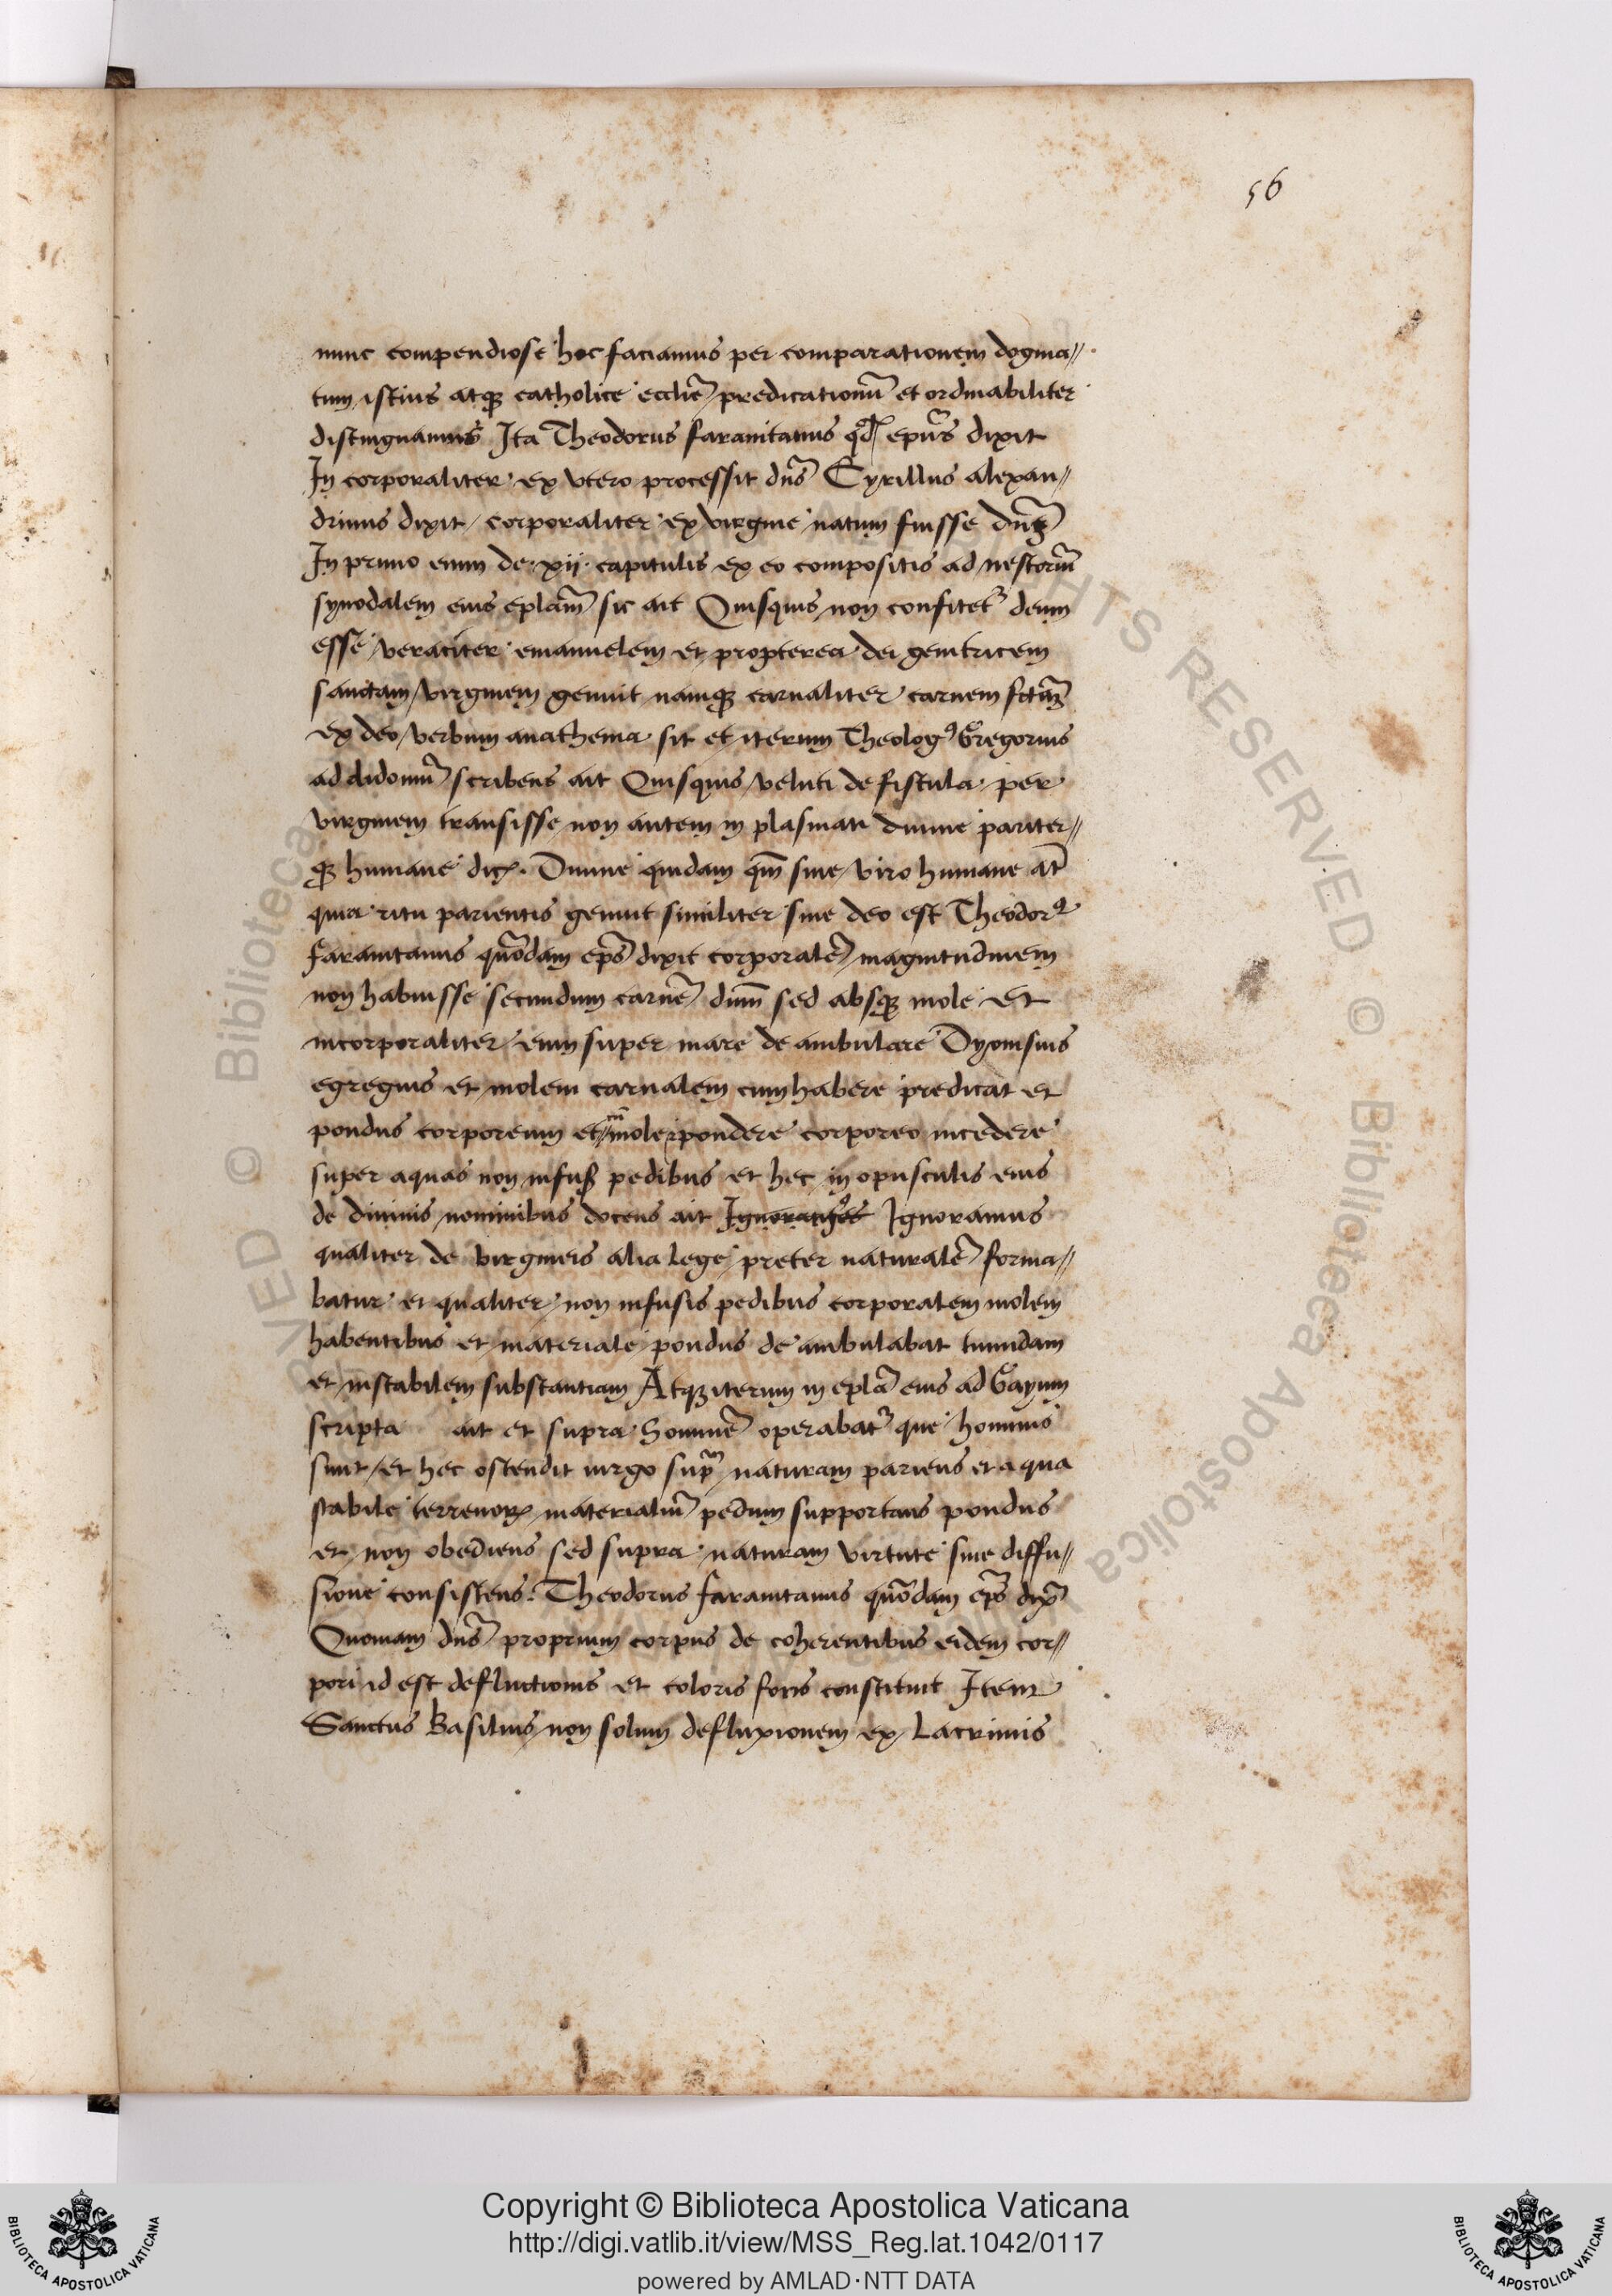 56
nunc compendiose hoc faciamus per comparationem dogma//
tum istius atqꝫ catholice ecclie᷑ predicationu᷑ et ordinabiliter
distinguamus Ita Theodorus faranitanus qd᷑ epu᷑s dixit
In corporaliter ex utero processit dn᷑s Cyrillus alexan//
drinus dixit corporaliter ex virgine natum fuisse dn᷑ꝫ
In primo enim de · xij · capitulis ex eo compositis ad nestoriu᷑
synodalem eius epla᷑m sic ait Quisquis non confitet᷑ deum
esse veraciter emanuelem et propterea dei genitricem
sanctam virginem genuit namqꝫ carnaliter carnem fctu᷑m
ex deo verbum anathema sit et iterum Theologꝰ Gregorius
ad clidoniu᷑ scribens ait Quisquis veluti de fistula per
virginem transisse non autem in plasmati diuine pariter//
qꝫ humane dicꝭ. Diuine quidam qm᷑ sine viro humane at᷑
quia ritu parientis genuit similiter sine deo est Theodorꝰ
faranitanus quo᷑dam ep᷑s dixit corporale᷑ magnitudinem
non habuisse secundum carne᷑ dnm᷑ sed absqꝫ mole et
incorporaliter eum super mare de ambulare Dyonisius
egregius et molem carnalem eum habere predicat et
pondus corporeum et in mole pondere corporeo incedere
super aquas non infusꝭ pedibus et hec in opusculis eius
de diuinis nominibus docens ait Ignoramus
qualiter de virgineis alia lege preter naturale᷑ forma//
batur et qualiter non infusis pedibus corporalem molem
habentibus et materiale pondus de ambulabat tumidam
et instabilem substantiam Atqꝫ iterum in epla᷑ eius ad Gayum
scripta ait et supra homine᷑ operabat᷑ que hominis
sunt et hec ostendit uirgo supra naturam pariens et aqua
stabile terrenoꝝ materialiu᷑ pedum supportans pondus
et non obediens sed supra naturam virtute sine diffu//
sione consistens. Theodorus faranitanus quo᷑dam ep᷑s dix᷑
Quoniam dn᷑s proprium corpus de coherentibus eidem cor//
pori id est defluctionis et coloris foris constituit Item
Sanctus Basilius non solum defluxionem ex Lacrimis
Copyright © Biblioteca Apostolica Vaticana
http://digi.vatlib.it/view/MSS_Reg.lat.1042/0117
powered by AMLAD·NTT DATA
BIBLIOTECA APOSTOLICA VATICANA
BIBLIOTECA APOSTOLICA VATICANA